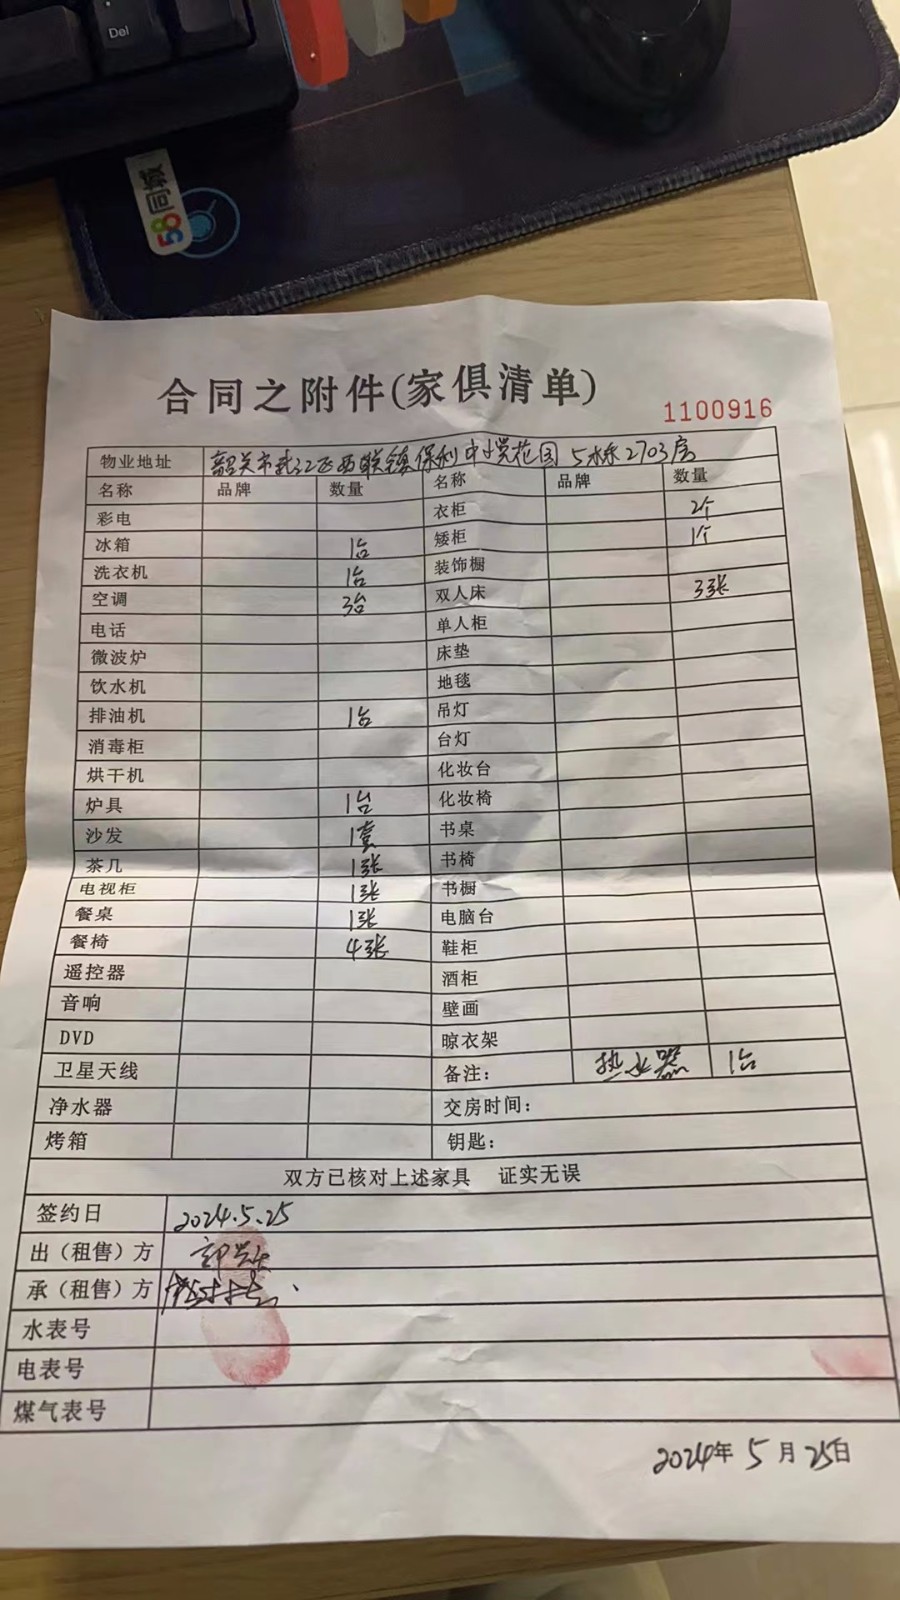 Del
58同城
合同之附件(家俱清单)
1100916
物业地址 韶关市武江区西联镇保利中悦花园5栋2703房
名称 品牌 数量 名称 品牌 数量
彩电 衣柜 2个
冰箱 1台 矮柜 1个
洗衣机 1台 装饰橱
空调 3台 双人床 3张
电话 单人柜
微波炉 床垫
饮水机 地毯
排油机 1台 吊灯
消毒柜 台灯
烘干机 化妆台
炉具 1台 化妆椅
沙发 1套 书桌
茶几 1张 书椅
电视柜 1张 书橱
餐桌 1张 电脑台
餐椅 4张 鞋柜
遥控器 酒柜
音响 壁画
DVD 晾衣架
卫星天线 备注: 热水器 1台
净水器 交房时间:
烤箱 钥匙:
双方已核对上述家具 证实无误
签约日 2024.5.25
出（租售）方
承（租售）方
水表号
电表号
煤气表号
2024年5月25日